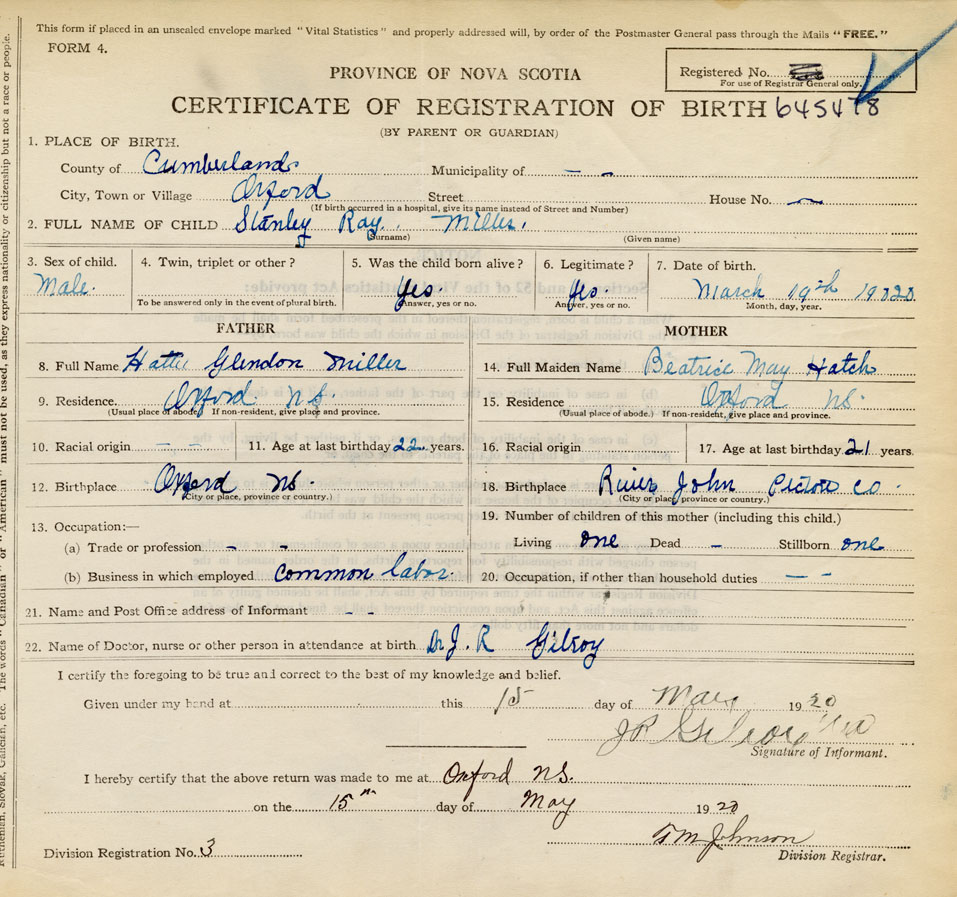 This form if placed in an unsealed envelope marked "Vital Statistics" and properly addressed will, by order of the Postmaster General pass through the Mails "FREE."
FORM 4.
PROVINCE OF NOVA SCOTIA
Registered No.
For use of Registrar General only.
CERTIFICATE OF REGISTRATION OF BIRTH 645478
(BY PARENT OR GUARDIAN)
1. PLACE OF BIRTH.
County of Cumberland Municipality of — -
City, Town or Village Oxford Street House No. —
(If birth occurred in a hospital, give its name instead of Street and Number)
2. FULL NAME OF CHILD Stanley Ray. Miller.
(Surname) (Given name)
3. Sex of child. 4. Twin, triplet or other? 5. Was the child born alive? 6. Legitimate? 7. Date of birth.
Male. Yes. Yes. March 19th 1920.
To be answered only in the event of plural birth. Answer, yes or no. Answer, yes or no. Month, day, year.
FATHER MOTHER
8. Full Name Glendon Miller 14. Full Maiden Name Beatrice May Hatch
9. Residence. Oxford NS. 15. Residence Oxford NS.
(Usual place of abode.) If non-resident, give place and province. (Usual place of abode.) If non-resident, give place and province.
10. Racial origin - - 11. Age at last birthday 22 years. 16. Racial origin 17. Age at last birthday 21 years.
12. Birthplace Oxford NS. 18. Birthplace River John Pictou Co.
(City or place, province or country.) (City or place, province or country.)
13. Occupation:— 19. Number of children of this mother (including this child.)
(a) Trade or profession - - Living one Dead - Stillborn one
(b) Business in which employed common labor. 20. Occupation, if other than household duties - -
21. Name and Post Office address of Informant - -
22. Name of Doctor, nurse or other person in attendance at birth Dr J. R Gilroy
I certify the foregoing to be true and correct to the best of my knowledge and belief.
Given under my hand at this 15 day of May 1920
J R Gilroy MD
Signature of Informant.
I hereby certify that the above return was made to me at Oxford NS.
on the 15th day of May 1920
Johnson
Division Registration No. 3 Division Registrar.
Ruthenian, Slovak, Galician, etc. The words "Canadian" or "American" must not be used, as they express nationality or citizenship but not a race or people.